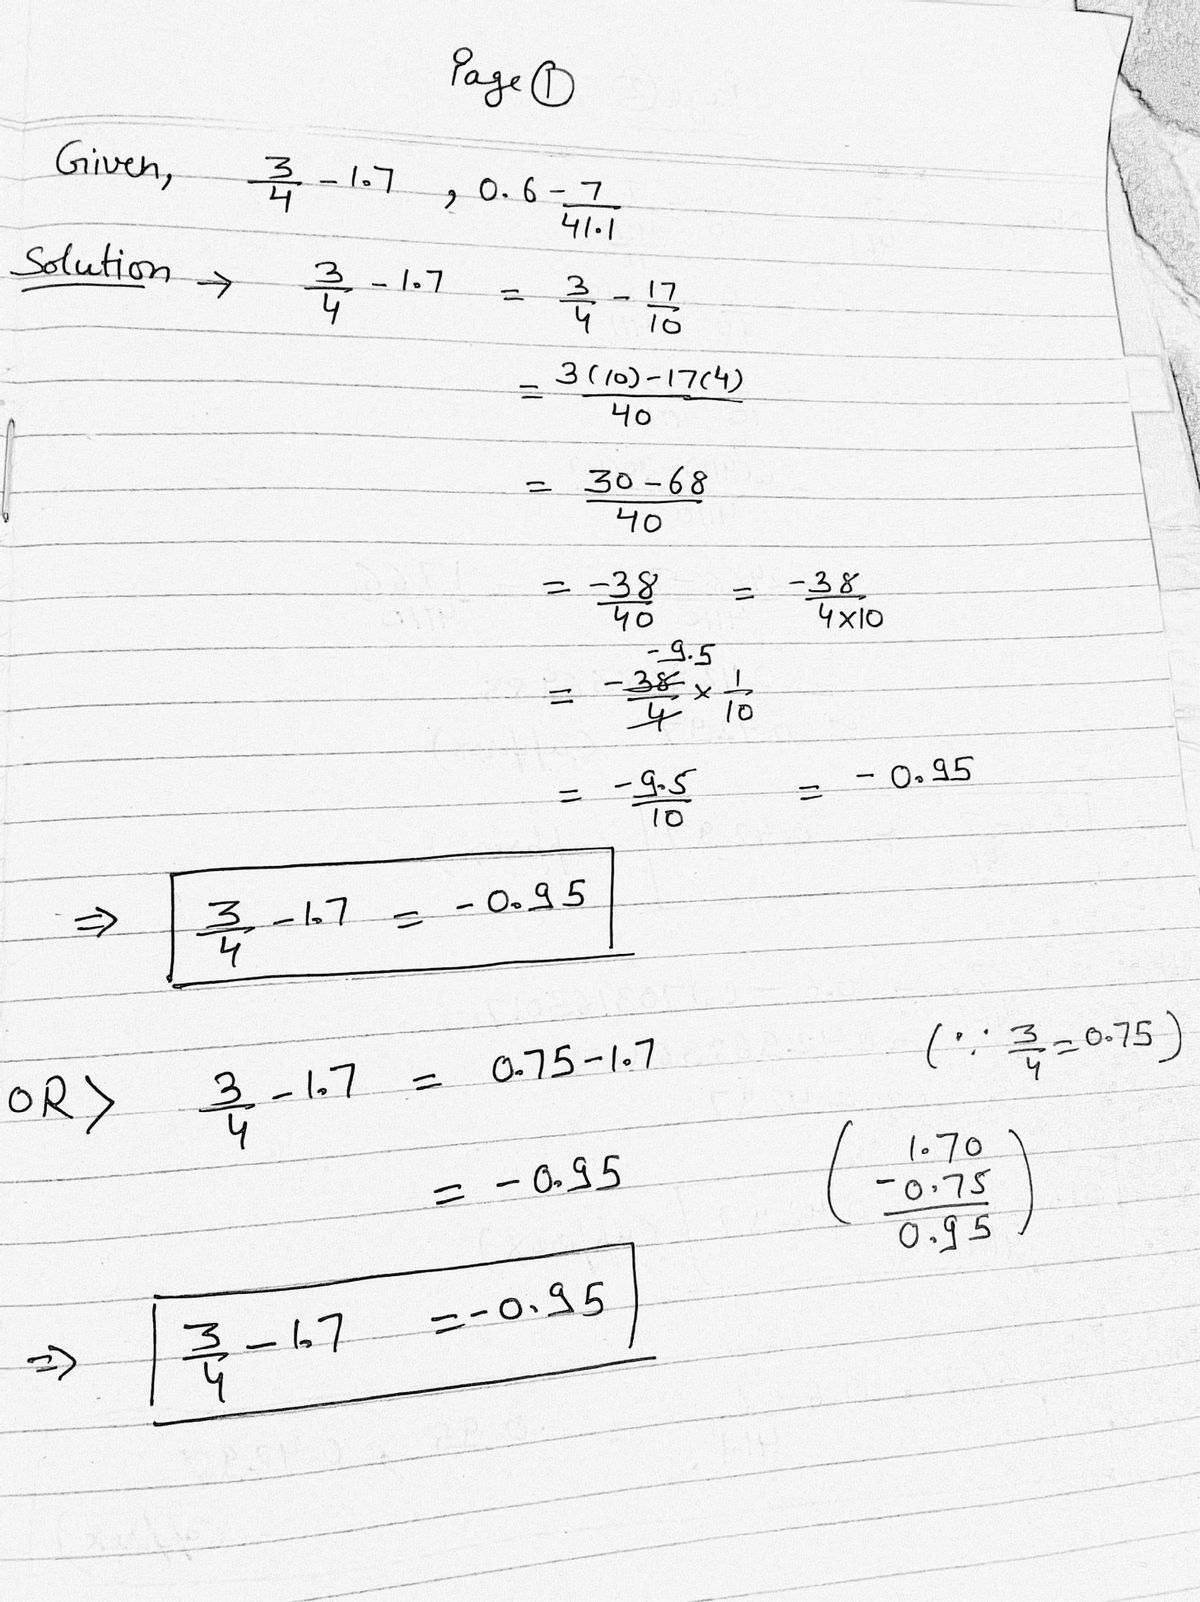 Page ①
Given, 3/4 - 1.7 , 0.6 - 7/41.1
Solution → 3/4 - 1.7 = 3/4 - 17/10
= 3(10)-17(4)/40
= 30-68/40
= -38/40 = -38/4×10
-9.5
= -38/4 × 1/10
= -9.5/10 = -0.95
⇒ 3/4 - 1.7 = -0.95
OR> 3/4 - 1.7 = 0.75-1.7 (∵ 3/4 = 0.75)
= -0.95
(1.70
-0.75
0.95)
⇒ 3/4 - 1.7 = -0.95